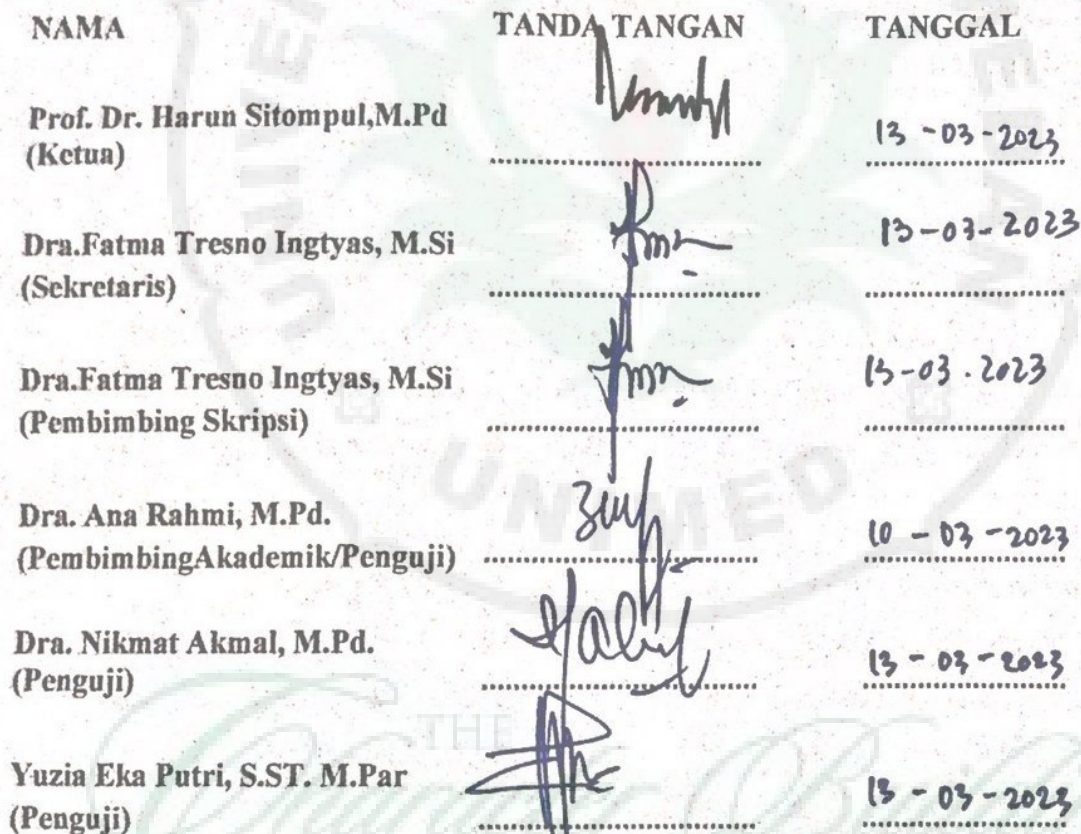 NAMA TANDA TANGAN TANGGAL
Prof. Dr. Harun Sitompul,M.Pd
(Ketua) 13 - 03 - 2023
Dra.Fatma Tresno Ingtyas, M.Si 13-03-2023
(Sekretaris)
Dra.Fatma Tresno Ingtyas, M.Si 13-03.2023
(Pembimbing Skripsi)
UNIMED
Dra. Ana Rahmi, M.Pd.
(PembimbingAkademik/Penguji) 10 - 03 - 2023
Dra. Nikmat Akmal, M.Pd.
(Penguji) 13 - 03 - 2023
THE
Yuzia Eka Putri, S.ST. M.Par
(Penguji) 13 - 03 - 2023